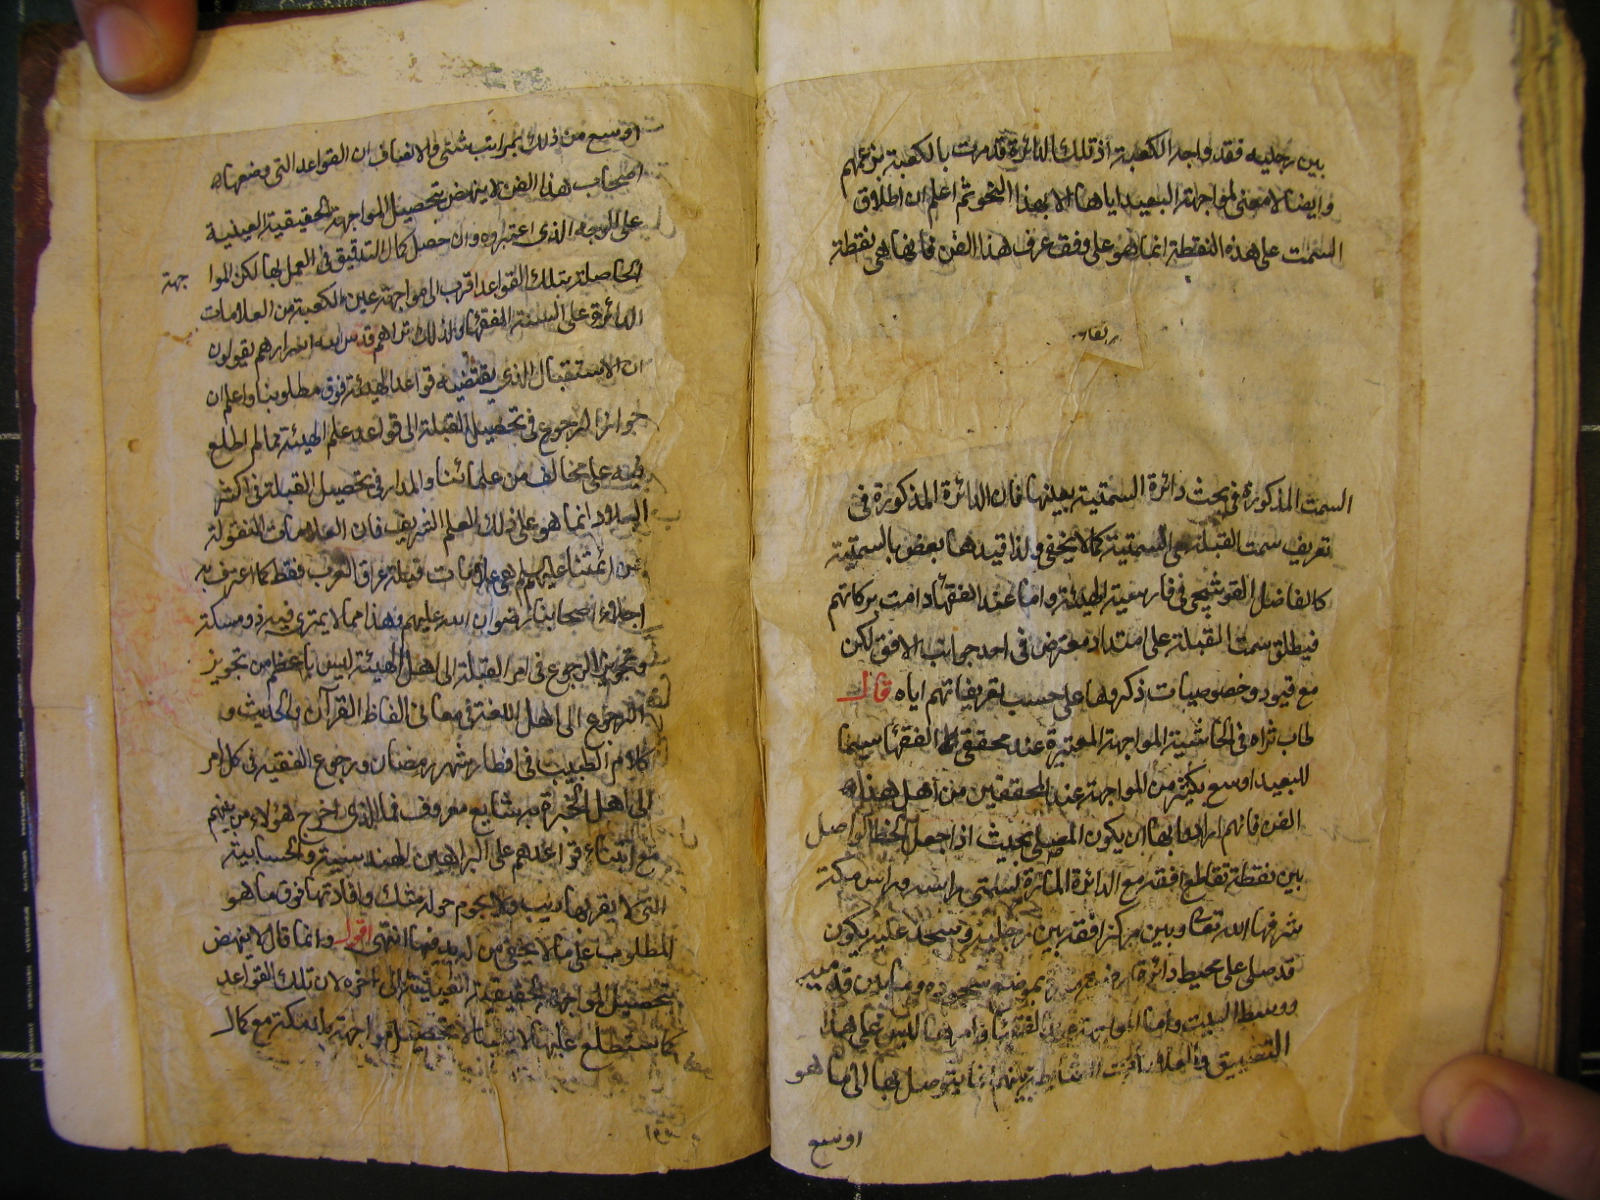 بين رجليه فقد واجه الكعبة اذ تلك الدائرة قد مرت بالكعبة بزعمهم
وايضا لا معنى لمواجهة البعيد اياها الا بهذا النحو ثم اعلم ان اطلاق
السمت على هذه النقطة انما هو على وفق عرف هذا الفن فانها هي نقطة
السمت المذكورة في بحث دائرة السمتية بعينها فان الدائرة المذكورة في
تعريف سمت القبلة هي السمتية كما لا يخفى ولذا قيدها بعض بالسمتية
كالفاضل القوشچي في فارسية الهيئة واما عند الفقهاء دامت بركاتهم
فيطلق سمت القبلة على امتداد معترض في احد جوانب الافق لكن
مع قيود وخصوصيات ذكروها على حسب تعريفاتهم اياه قال
طاب ثراه في الحاشية المواجهة المعتبرة عند محققي الفقهاء سيما
للبعيد اوسع بكثير من المواجهة عند المحققين من اهل هذا
الفن فانهم ارادوا بها ان يكون المصلي بحيث اذا جعل الخط الواصل
بين نقطة تقاطع افقه مع الدائرة المارة بسمتي راسه وراس مكة
شرفها الله تعالى وبين مركز افقه بين رجليه وسجد عليه يكون
قد صلى على محيط دائرة بموضع سجوده وما بين قدميه
ووسط البيت واما المواجهة عند الفقهاء فامرها ليس على هذا
التضييق والعلامات بينهم انما يتوصل بها الى ما هو
اوسع
اوسع من ذلك بمراتب شتى والانصاف ان القواعد التي وضعها
اصحاب هذا الفن لا ينهض بتحصيل المواجهة الحقيقية العينية
على الوجه الذي اعتبروه وان حصل كمال التدقيق في العمل بها لكن الموا
جهة
الحاصلة بتلك القواعد اقرب الى مواجهة عين الكعبة من العلامات
الدائرة على السنة الفقهاء ولذلك تراهم قدس الله اسرارهم يقولون
ان الاستقبال الذي يقتضيه قواعد الهيئة فوق مطلوبنا واعلم ان
جواز الرجوع في تحصيل القبلة الى قواعد علم الهيئة مما لم اطلع
فيه على مخالف من علمائنا والمدار في تحصيل القبلة في اكثر
البلاد انما هو على ذلك العلم الشريف فان العلامات المنقولة
عن ائمتنا عليهم السلم هي علامات قبلة عراق العرب فقط كما اعترف به
اجلاء اصحابنا رضوان الله عليهم وهذا مما لا يمتري فيه ذو مسكة
وتجويز الرجوع في امر القبلة الى اهل الهيئة ليس باعظم من تجويز
الرجوع الى اهل اللغة في معاني الفاظ القرآن والحديث و
كلام الطبيب في افطار شهر رمضان ورجوع الفقيه في كل امر
الى اهل الخبرة به شايع معروف فما الذي اخرج هؤلاء من بينهم
مع ابتناء قواعدهم على البراهين الهندسية والحسابية
التي لا يقربها ريب ولا يحوم حوله شك وافادتها فوق ما هو
المطلوب على ما لا يخفى من له يد فيها انتهى اقول وانما قال لا ينهض
بتحصيل المواجهة الحقيقية الى آخره لان تلك القواعد
كما ستطلع عليها لا يفيد الا تحصيل مواجهة بلد مكة مع كمال